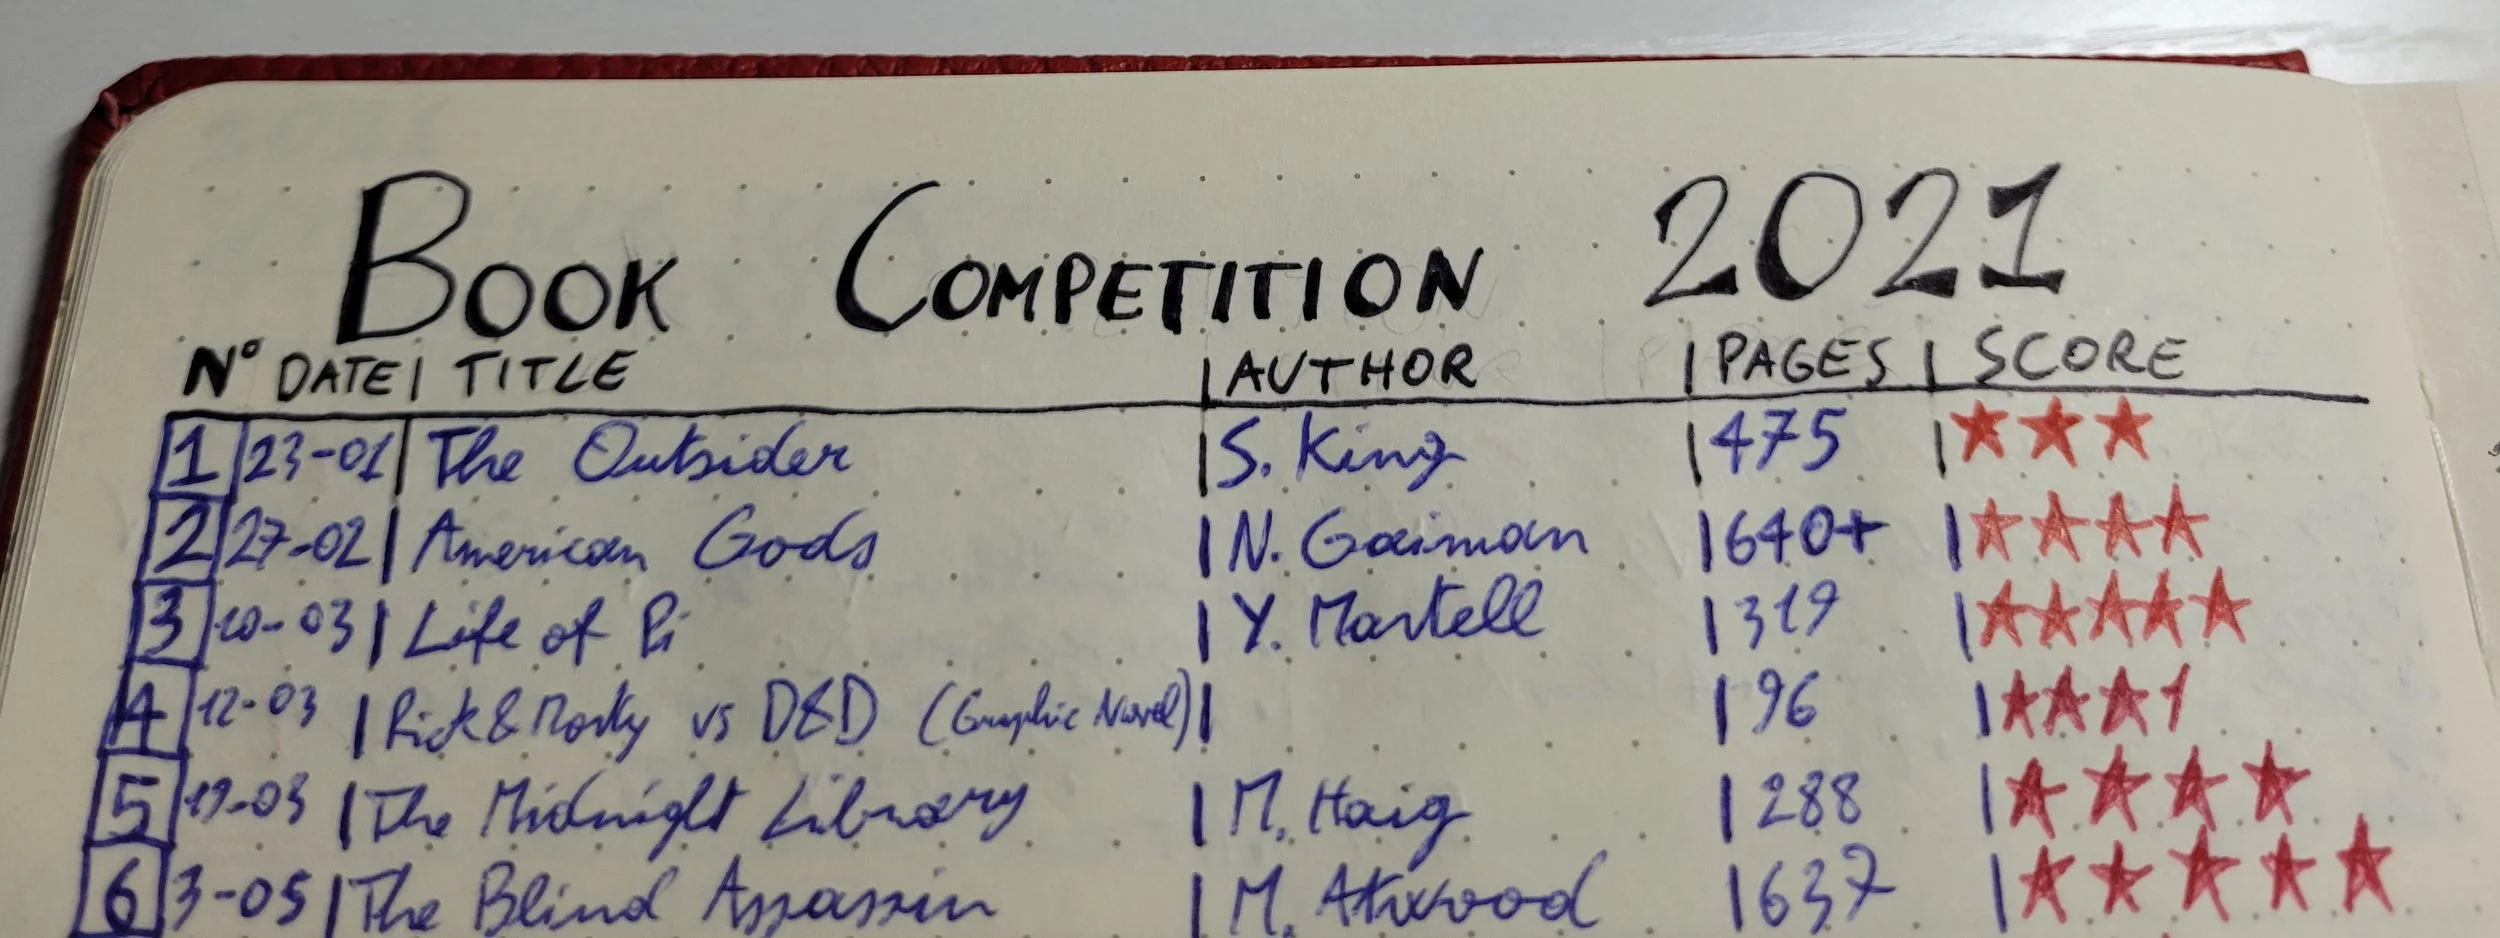 BOOK COMPETITION 2021
N° DATE | TITLE | AUTHOR | PAGES | SCORE
1 23-01 | The Outsider | S. King | 475 | ★★★
2 27-02 | American Gods | N. Gaiman | 640+ | ★★★★
3 10-03 | Life of Pi | Y. Martell | 319 | ★★★★★
4 12-03 | Rick & Morty vs D&D (Graphic Novel) | | 96 | ★★★
5 19-03 | The Midnight Library | M. Haig | 288 | ★★★★
6 3-05 | The Blind Assassin | M. Atwood | 637 | ★★★★★